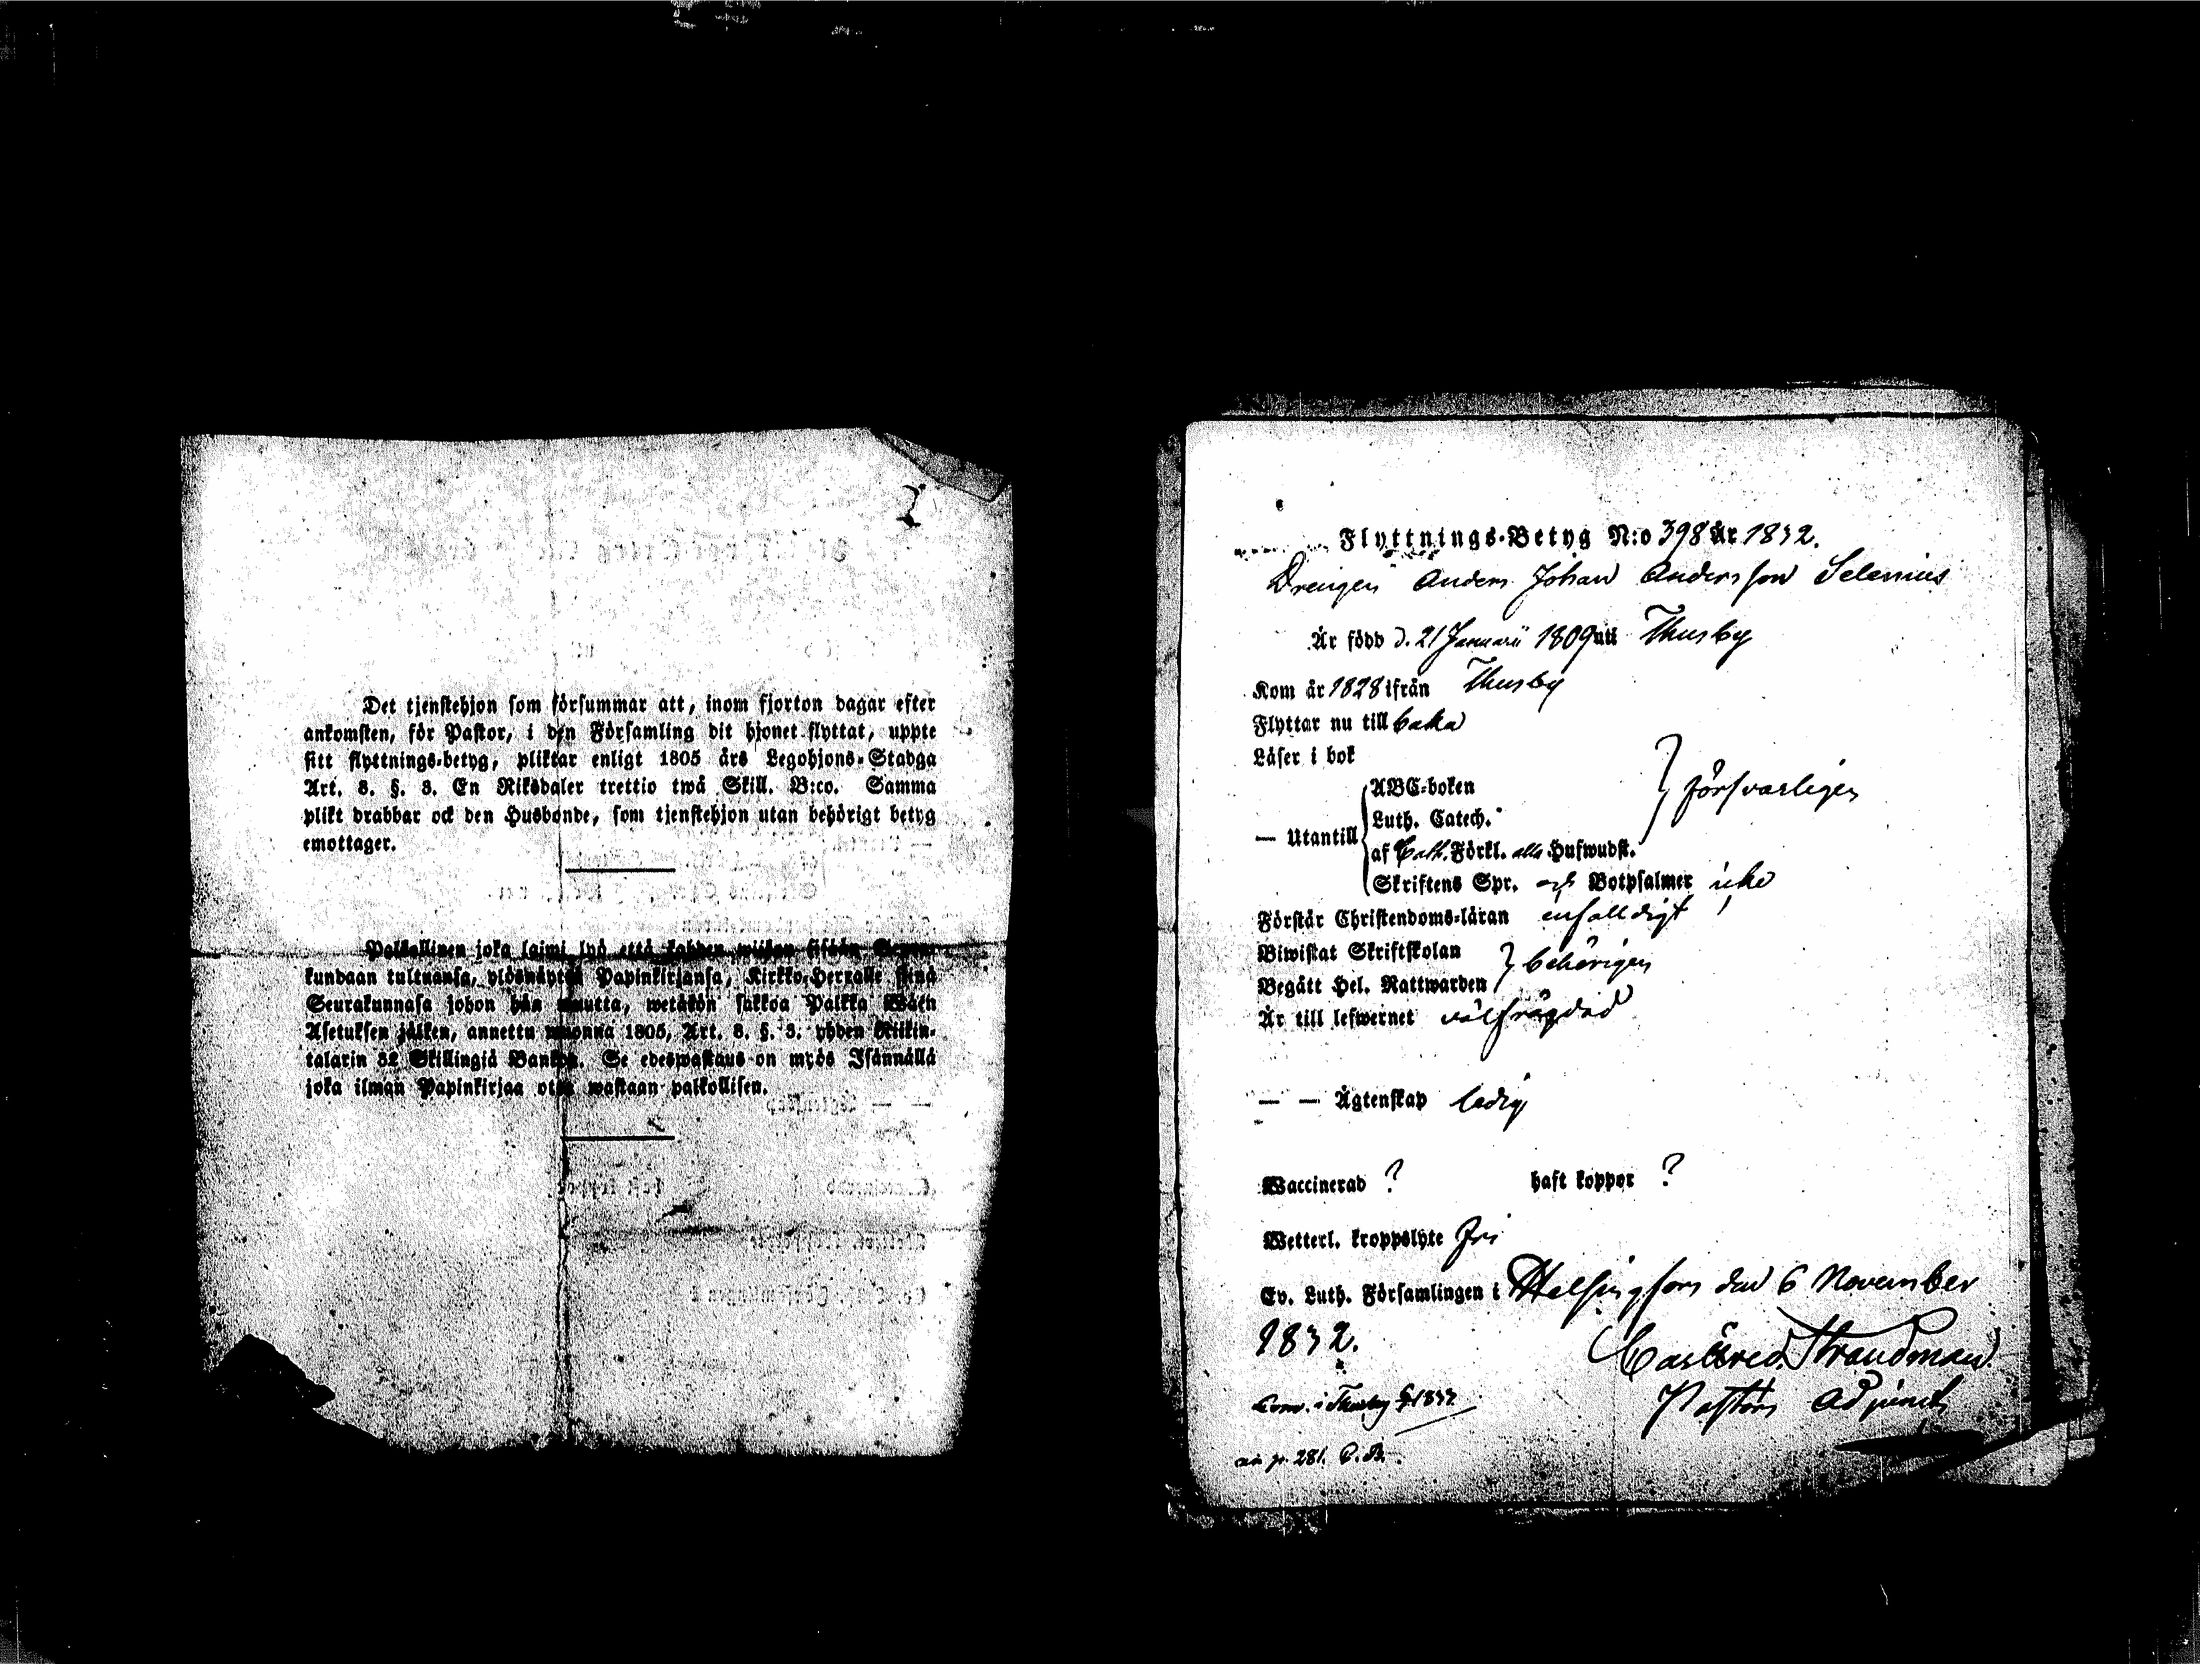 Det tjenstehjon som försummar att, inom fjorton dagar efter
ankomsten, för Pastor, i den Församling dit hjonet flyttat, uppte
sitt flyttnings-betyg, pliktar enligt 1805 års Legohjons-Stadga
Art. 8. §. 3. En Riksdaler trettio twå Skill. B:co. Samma
plikt drabbar ock den Husbonde, som tjenstehjon utan behörigt betyg
emottager.
Palkollinen joka laimi lyö että kahden wiikon sisään
kundaan tultuansa, ylösnäyttää Papinkirjansa, Kirkko-Herralle siinä
Seurakunnasa johon hän muutta, wetäkön sakkoa Palkka Wäen
Asetuksen jälken, annettu wuonna 1805, Art. 8. §. 3. yhden Riikin-
talarin 32 Skillingiä Bankos. Se edeswastaus on myös Isännällä
joka ilman Papinkirjaa otta wastaan palkollisen.
Flyttnings-Betyg N:o 398 År 1832.
Drengen Anders Johan Andersson Selenius
Är född d. 21 Januarii 1809 uti Thusby
Kom år 1828 ifrån Thusby
Flyttar nu till baka
Läser i bok
ABC-boken
Luth. Catech.
försvarligen
— Utantill
af Cath. Förkl. alla Hufwudst.
Skriftens Spr. och Botpsalmer icke
Förstår Christendoms-läran enfalldigt
Biwistat Skriftskolan
behörigen
Begått Hel. Nattwarden
Är till lefwernet välfrägdad
— — Ägtenskap ledig
Waccinerad ? haft koppor ?
Wetterl. kroppslyte fri
Ev. Luth. Församlingen i Helsingfors den 6 November
1832.
Carl Fred. Strandman.
Pastors Adjunct
i Thusby 1832
p. 281.